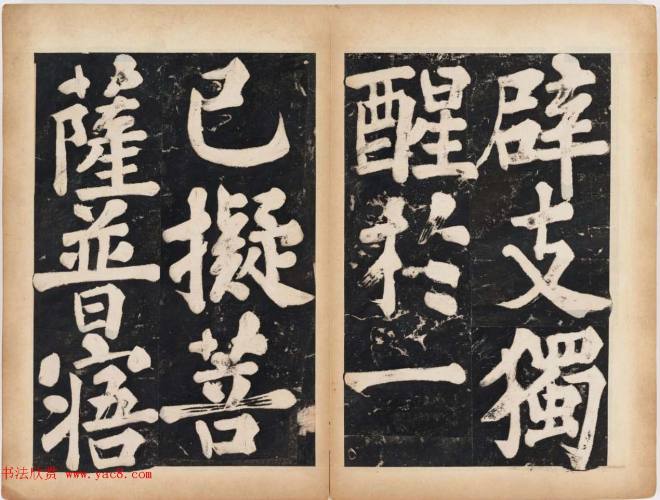 辟支獨
醒於一
已擬菩
薩普寤
书法欣赏 www.yac8.com